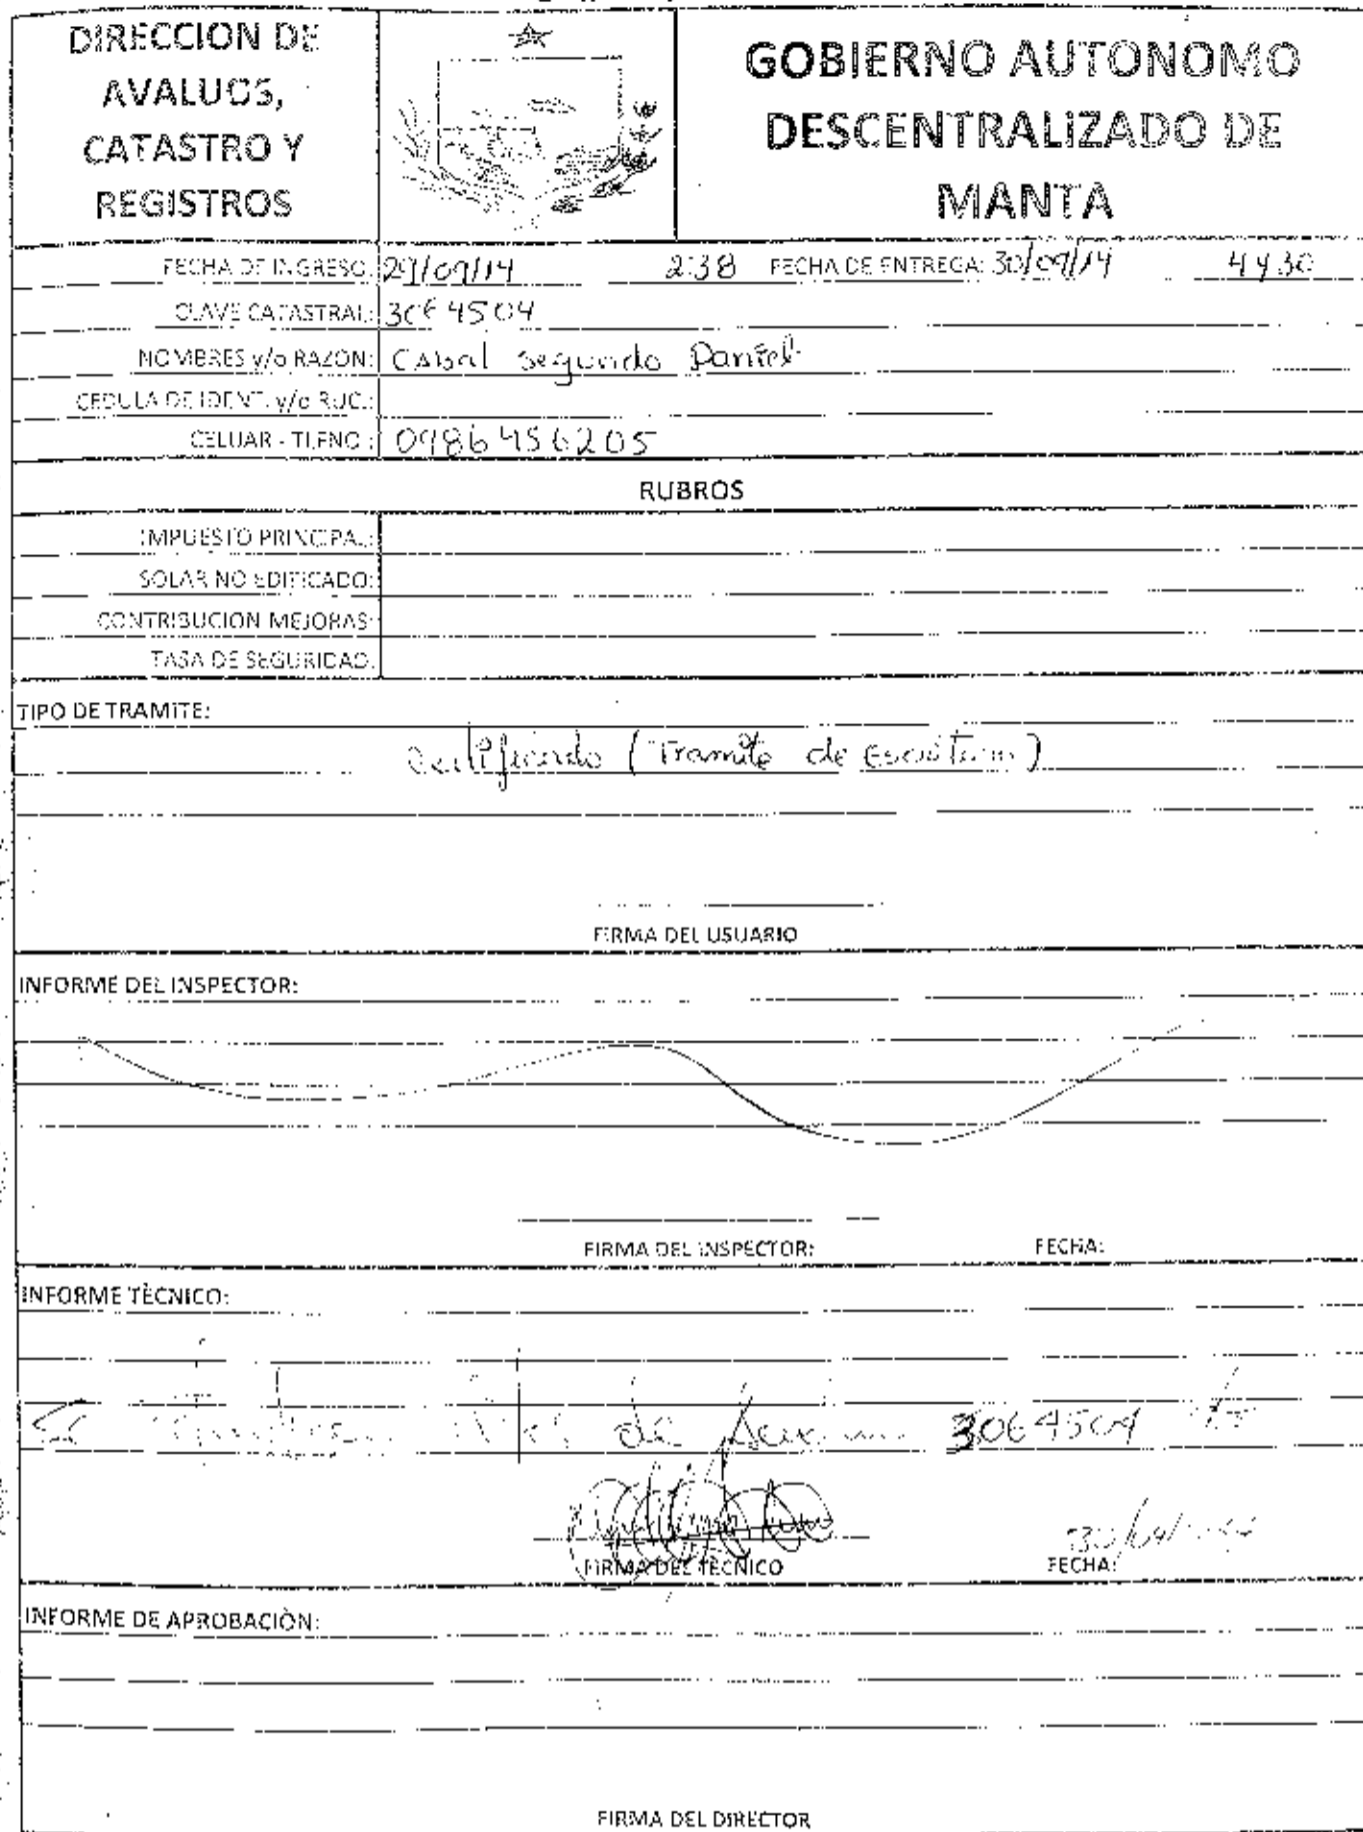 DIRECCION DE
AVALUOS,
CATASTRO Y
REGISTROS
GOBIERNO AUTONOMO
DESCENTRALIZADO DE
MANTA
FECHA DE INGRESO: 29/09/14 2:38 FECHA DE ENTREGA: 30/09/14 4430
CLAVE CATASTRAL: 3064504
NOMBRES y/o RAZON: Cabal Segundo Daniel
CEDULA DE IDENT. y/o RUC.:
CELUAR - TLFNO : 0986456205
RUBROS
IMPUESTO PRINCIPAL:
SOLAR NO EDIFICADO:
CONTRIBUCION MEJORAS:
TASA DE SEGURIDAD:
TIPO DE TRAMITE:
Certificado (Tramite de Escritura)
FIRMA DEL USUARIO
INFORME DEL INSPECTOR:
FIRMA DEL INSPECTOR: FECHA:
INFORME TÈCNICO:
Se de 3064504
FIRMA DEL TECNICO FECHA:
INFORME DE APROBACIÒN:
FIRMA DEL DIRECTOR